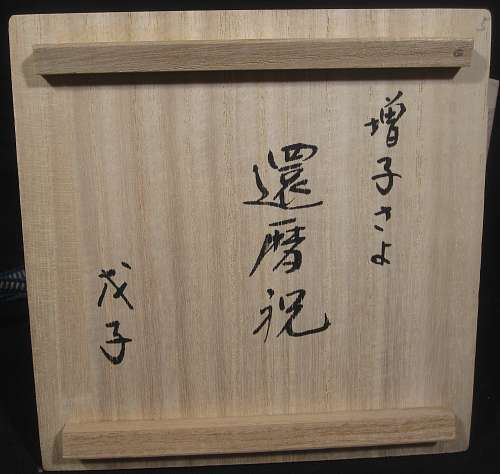 増子さよ
還暦祝
戊子